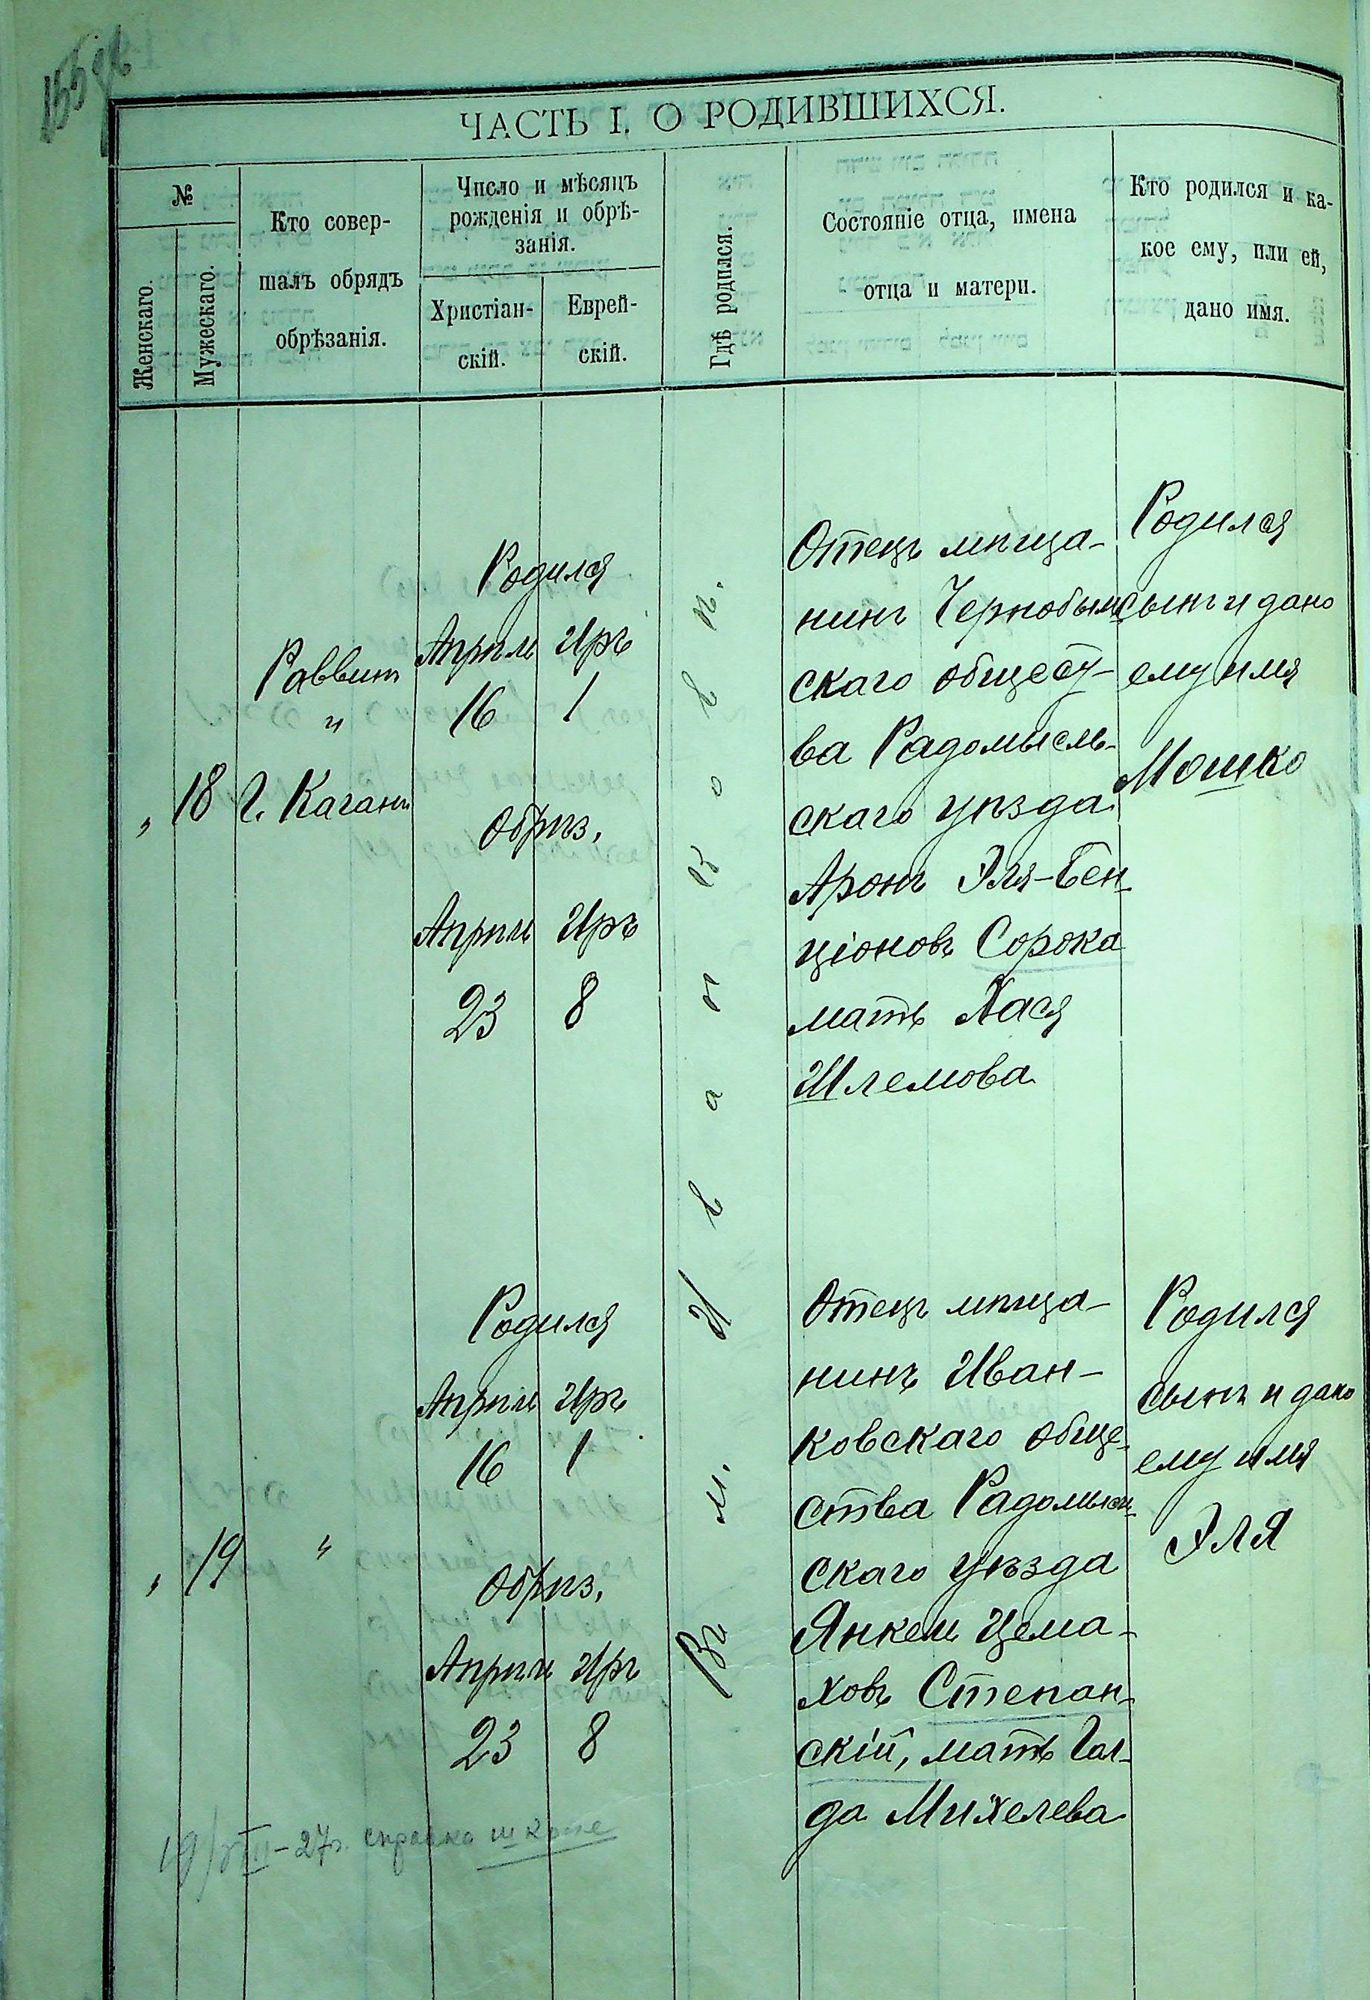 155об
ЧАСТЬ I. О РОДИВШИХСЯ.
№
Женскаго.
Мужескаго.
Кто совер-
шалъ обрядъ
обрѣзанія.
Число и мѣсяцъ
рожденія и обрѣ-
занія.
Христіан-
скій.
Еврей-
скій.
Гдѣ родился.
Состояніе отца, имена
отца и матери.
Кто родился и ка-
кое ему, или ей,
дано имя.
„
18
Раввин
"
Г. Каганъ
Родился
Апрѣля Иръ
16 1
Обрѣз.
Апрѣля Иръ
23 8
Въ м. Иванковѣ.
Отецъ мѣща-
нинъ Чернобыль-
скаго общест-
ва Радомысль-
скаго уѣзда
Аронъ Эля-Бен-
ціоновъ Сорока
мать Хася
Шлемова
Родился
сынъ и дано
ему имя
Мошко
„
19
"
Родился
Апрѣля Иръ
16 1
Обрѣз.
Апрѣля Иръ
23 8
Отецъ мѣща-
нинъ Иван-
ковскаго обще-
ства Радомысль-
скаго уѣзда
Янкель Цема-
ховъ Степан-
скій, мать Гол-
да Михелева
Родился
сынъ и дано
ему имя
Эля
19/VIII-27г. справка школе